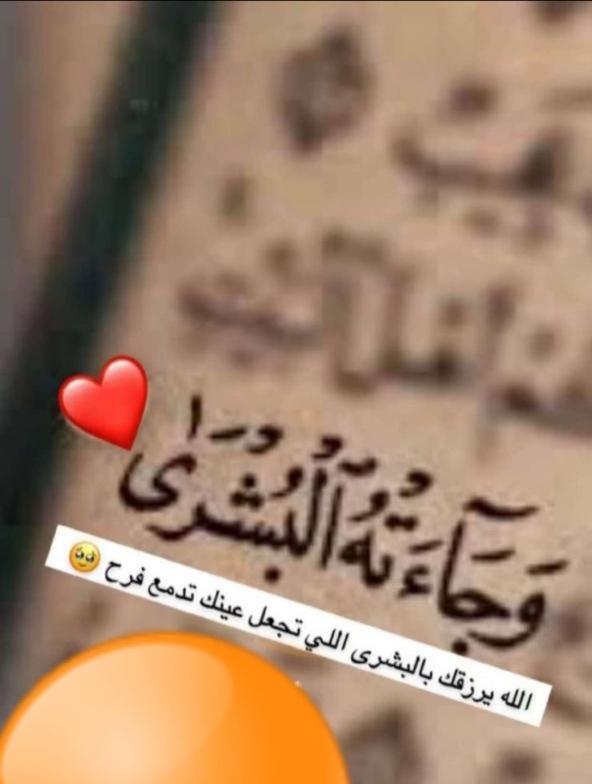 أَهْلَ ٱلْبَيْتِ
وَجَآءَتْهُ ٱلْبُشْرَىٰ
الله يرزقك بالبشرى اللي تجعل عينك تدمع فرح 🥹